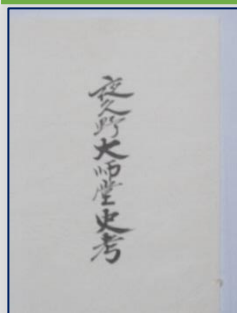 夜久野大师堂史考